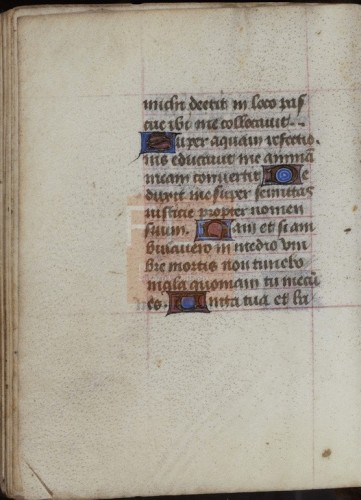 michi deerit in loco pas
cue ibi me collocavit.
Super aquam refectio
nis educavit me animã
meam convertit De
duxit me super semitas
iusticie propter nomen
suum. Nam et si am
bulavero in medio um
bre mortis non timebo
mala quoniam tu mecũ
es. Virga tua et ba